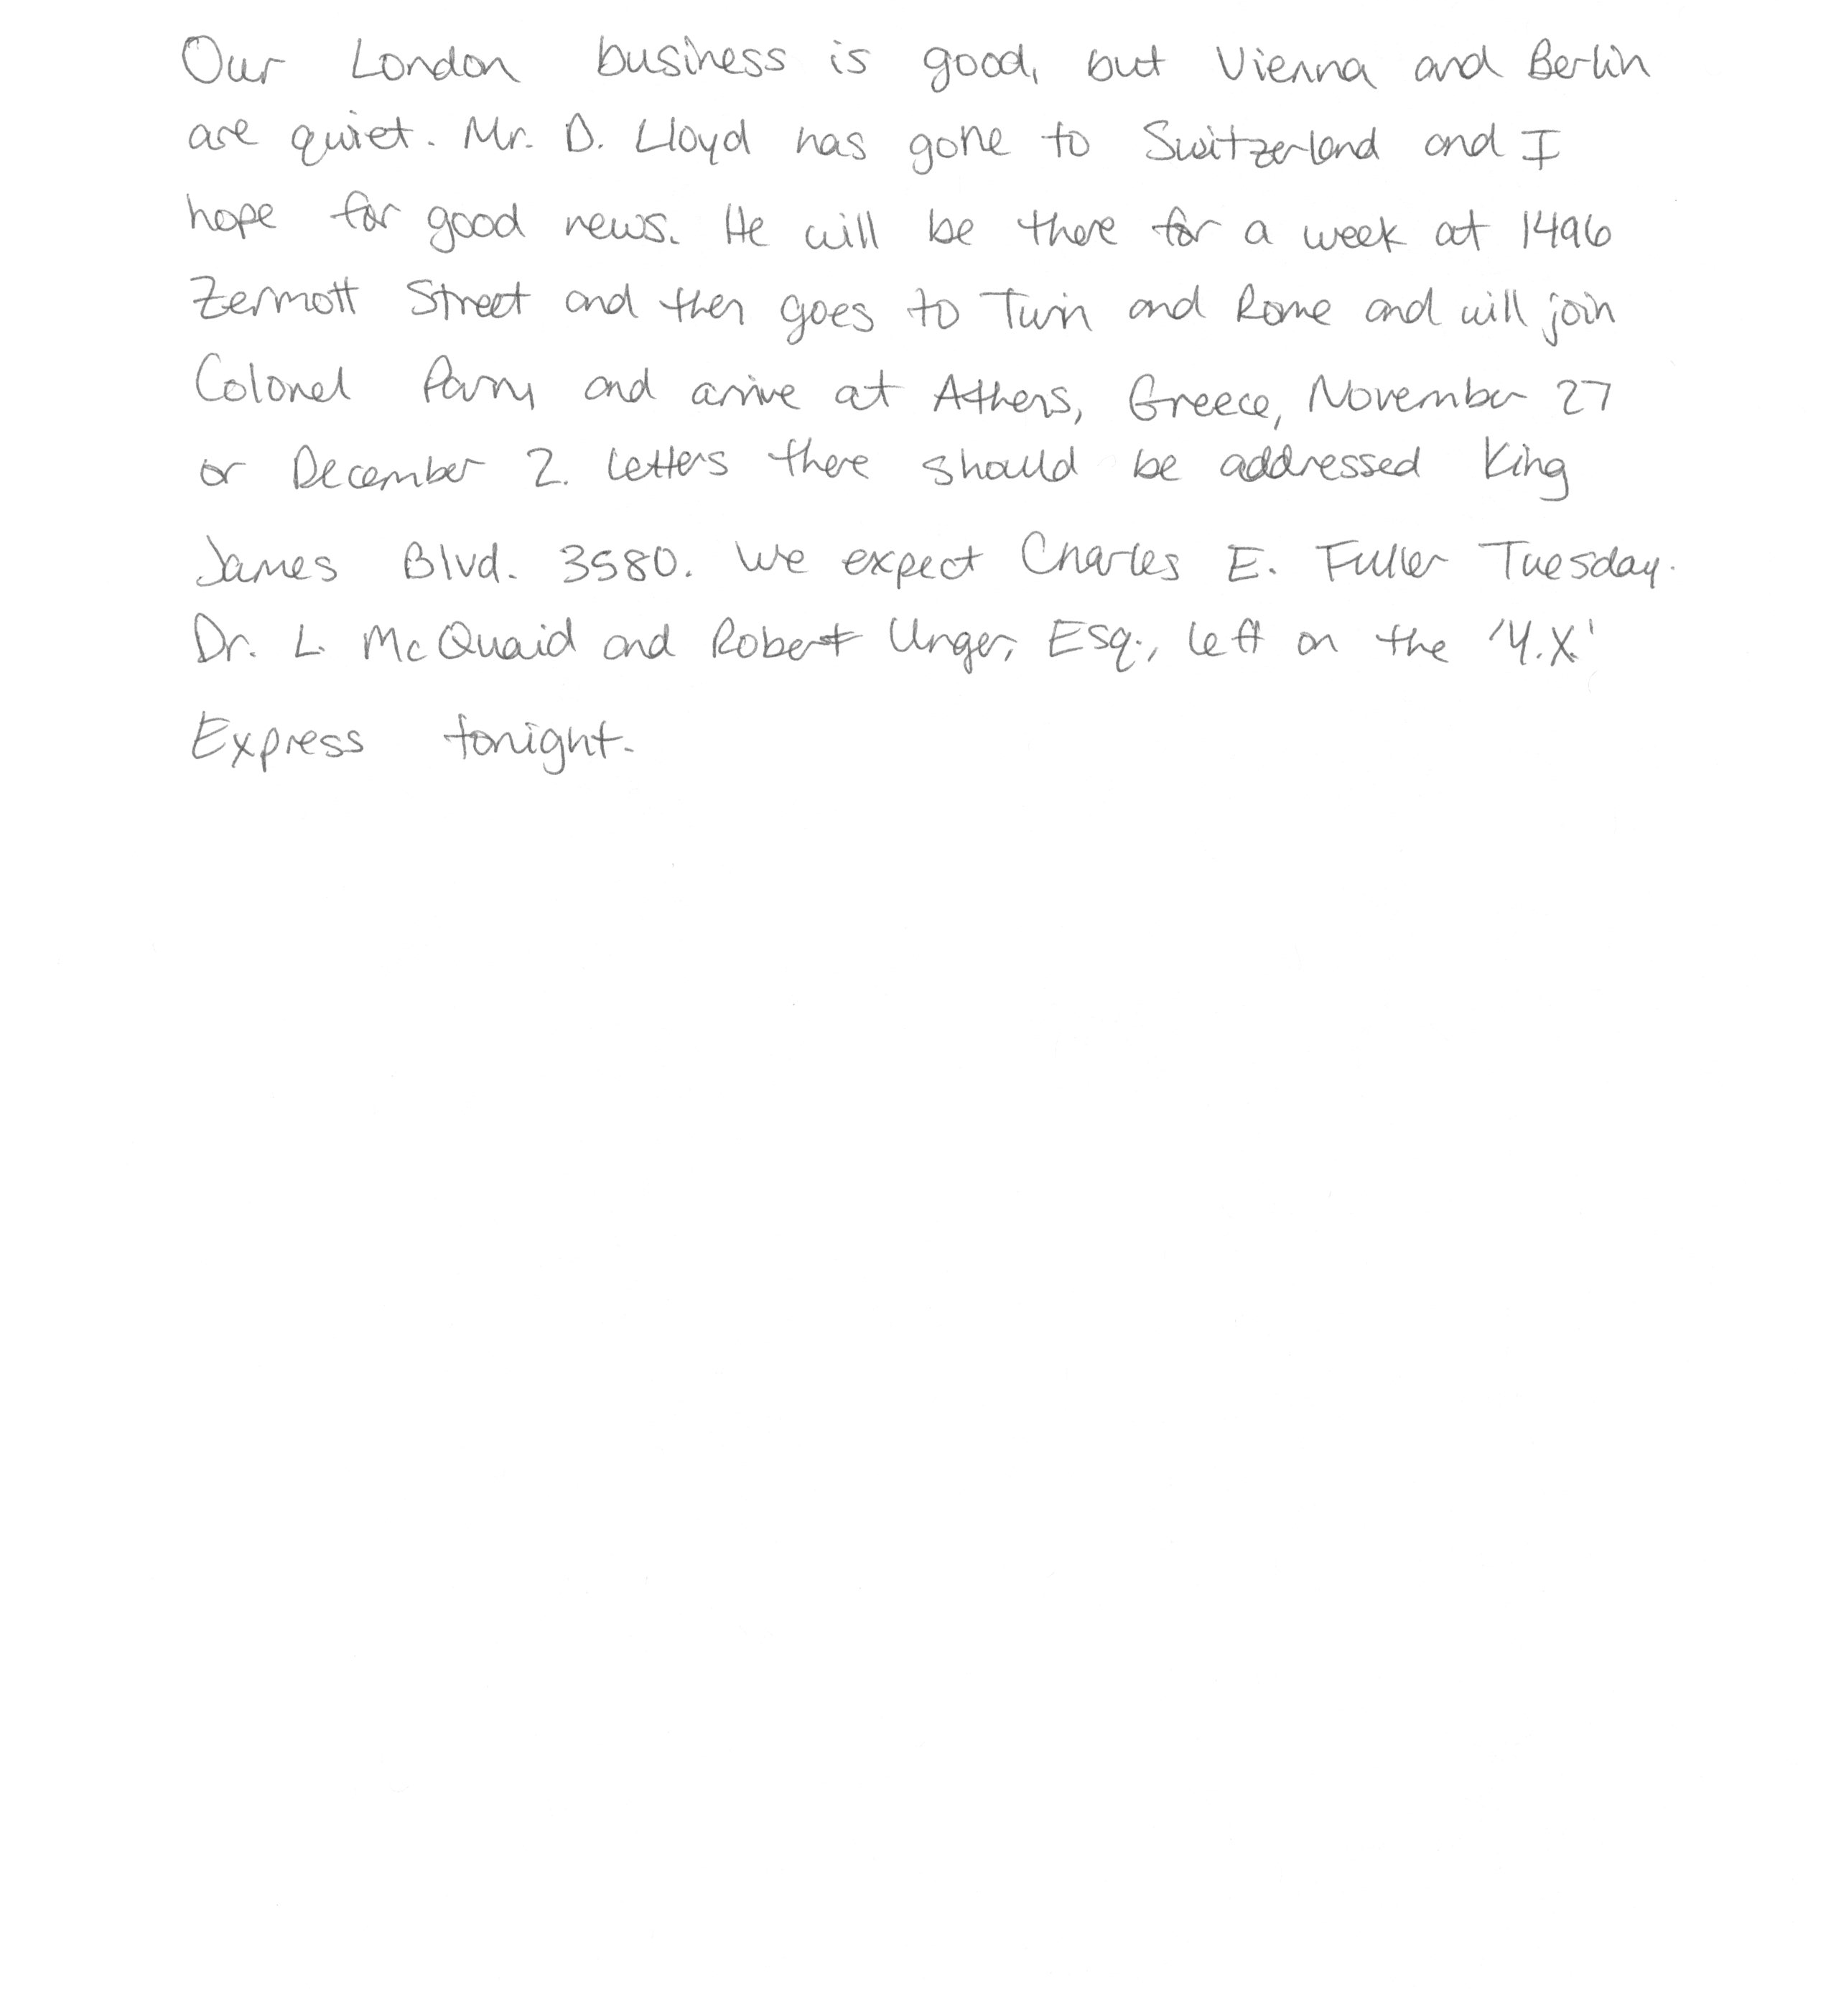 Our London business is good, but Vienna and Berlin
are quiet. Mr. D. Lloyd has gone to Switzerland and I
hope for good news. He will be there for a week at 1496
Zermott Street and then goes to Turin and Rome and will join
Colonel Parry and arrive at Athens, Greece, November 27
or December 2. Letters there should be addressed King
James Blvd. 3580. We expect Charles E. Fuller Tuesday.
Dr. L. McQuaid and Robert Unger, Esq., left on the 'Y.X.'
Express tonight.